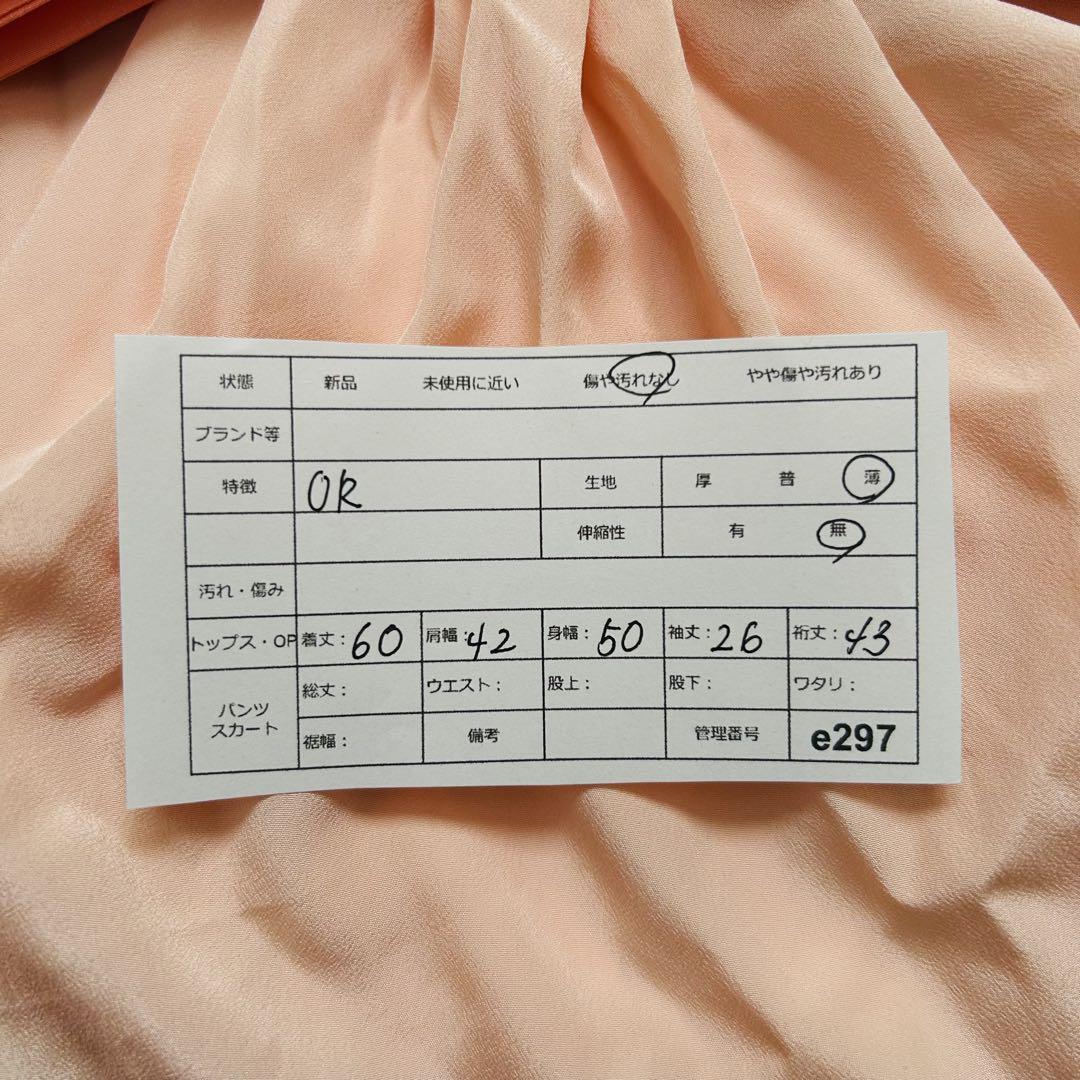 状態 新品 未使用に近い 傷や汚れなし やや傷や汚れあり
ブランド等
特徴 OK 生地 厚 普 薄
伸縮性 有 無
汚れ・傷み
トップス・OP 着丈:60 肩幅:42 身幅:50 袖丈:26 裄丈:43
パンツ スカート 総丈: ウエスト: 股上: 股下: ワタリ:
裾幅: 備考 管理番号 e297